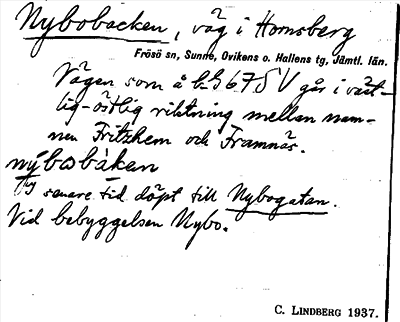 Nybobacken, väg i Hornsberg
Frösö sn, Sunne, Ovikens o. Hallens tg, Jämtl. län.
Vägen som å bl. 3 675 V går i väst-
lig-östlig riktning mellan nam-
nen Fritzhem och Framnäs.
nýbobàkan
I senare tid döpt till Nybogatan.
Vid bebyggelsen Nybo.
C. LINDBERG 1937.